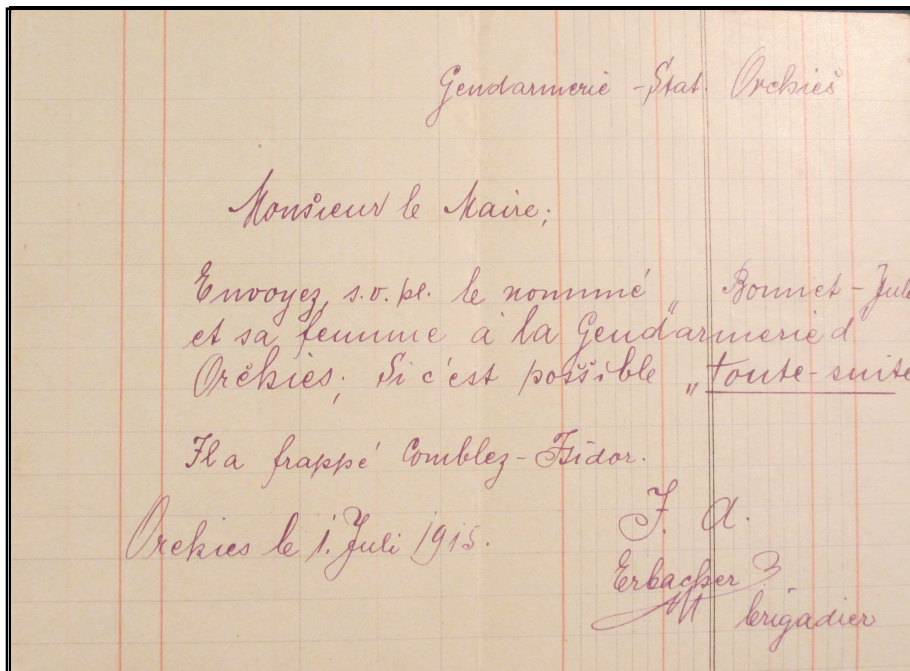 Gendarmerie - Stat. Orchies
Monsieur le Maire;
Envoyez, s.v.pl. le nommé „ Bonnet - Jule
et sa femme à la Gendarmerie d
Orchies; Si c'est possible „toute-suite
Il a frappé Comblez - Isidor.
Orchies le 1. Juli 1915.
J. A.
Erbacher
brigadier